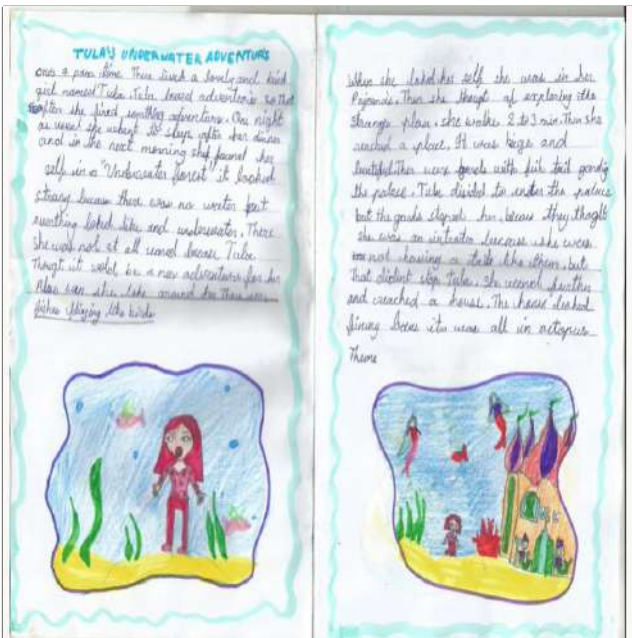 TULA'S UNDERWATER ADVENTURS
Ones a pon a time. There lived a lovely and kind
girl named Tula. Tula loved adventure so that
after she fined somthing adventure. One night
as usual she whent to sleep after her dinner
and in the next morning she found her
self in a "Underwater forest" it looked
strang because there was no water but
evrything loked like and underwater. There
she was not at all scared becaus Tula
thought it wold be a new adventure for her
Also wen she loke around her There was
fishes flying like birds
When she loked her self she was in her
Pajamas. Then she thought of exploring the
strange place. she walks 2 to 3 min. Then she
reached a place. It was huge and
beautiful. Ther were guards with fish tail garding
the palace. Tula disided to enter the palace
but the gards stoped her becaus they thoght
she was an intruder because she was
not having a tail like them. but
that didient stop Tula. She wennd further
and reached a house. The house looked
funny becaus it was all in octopus
Theme